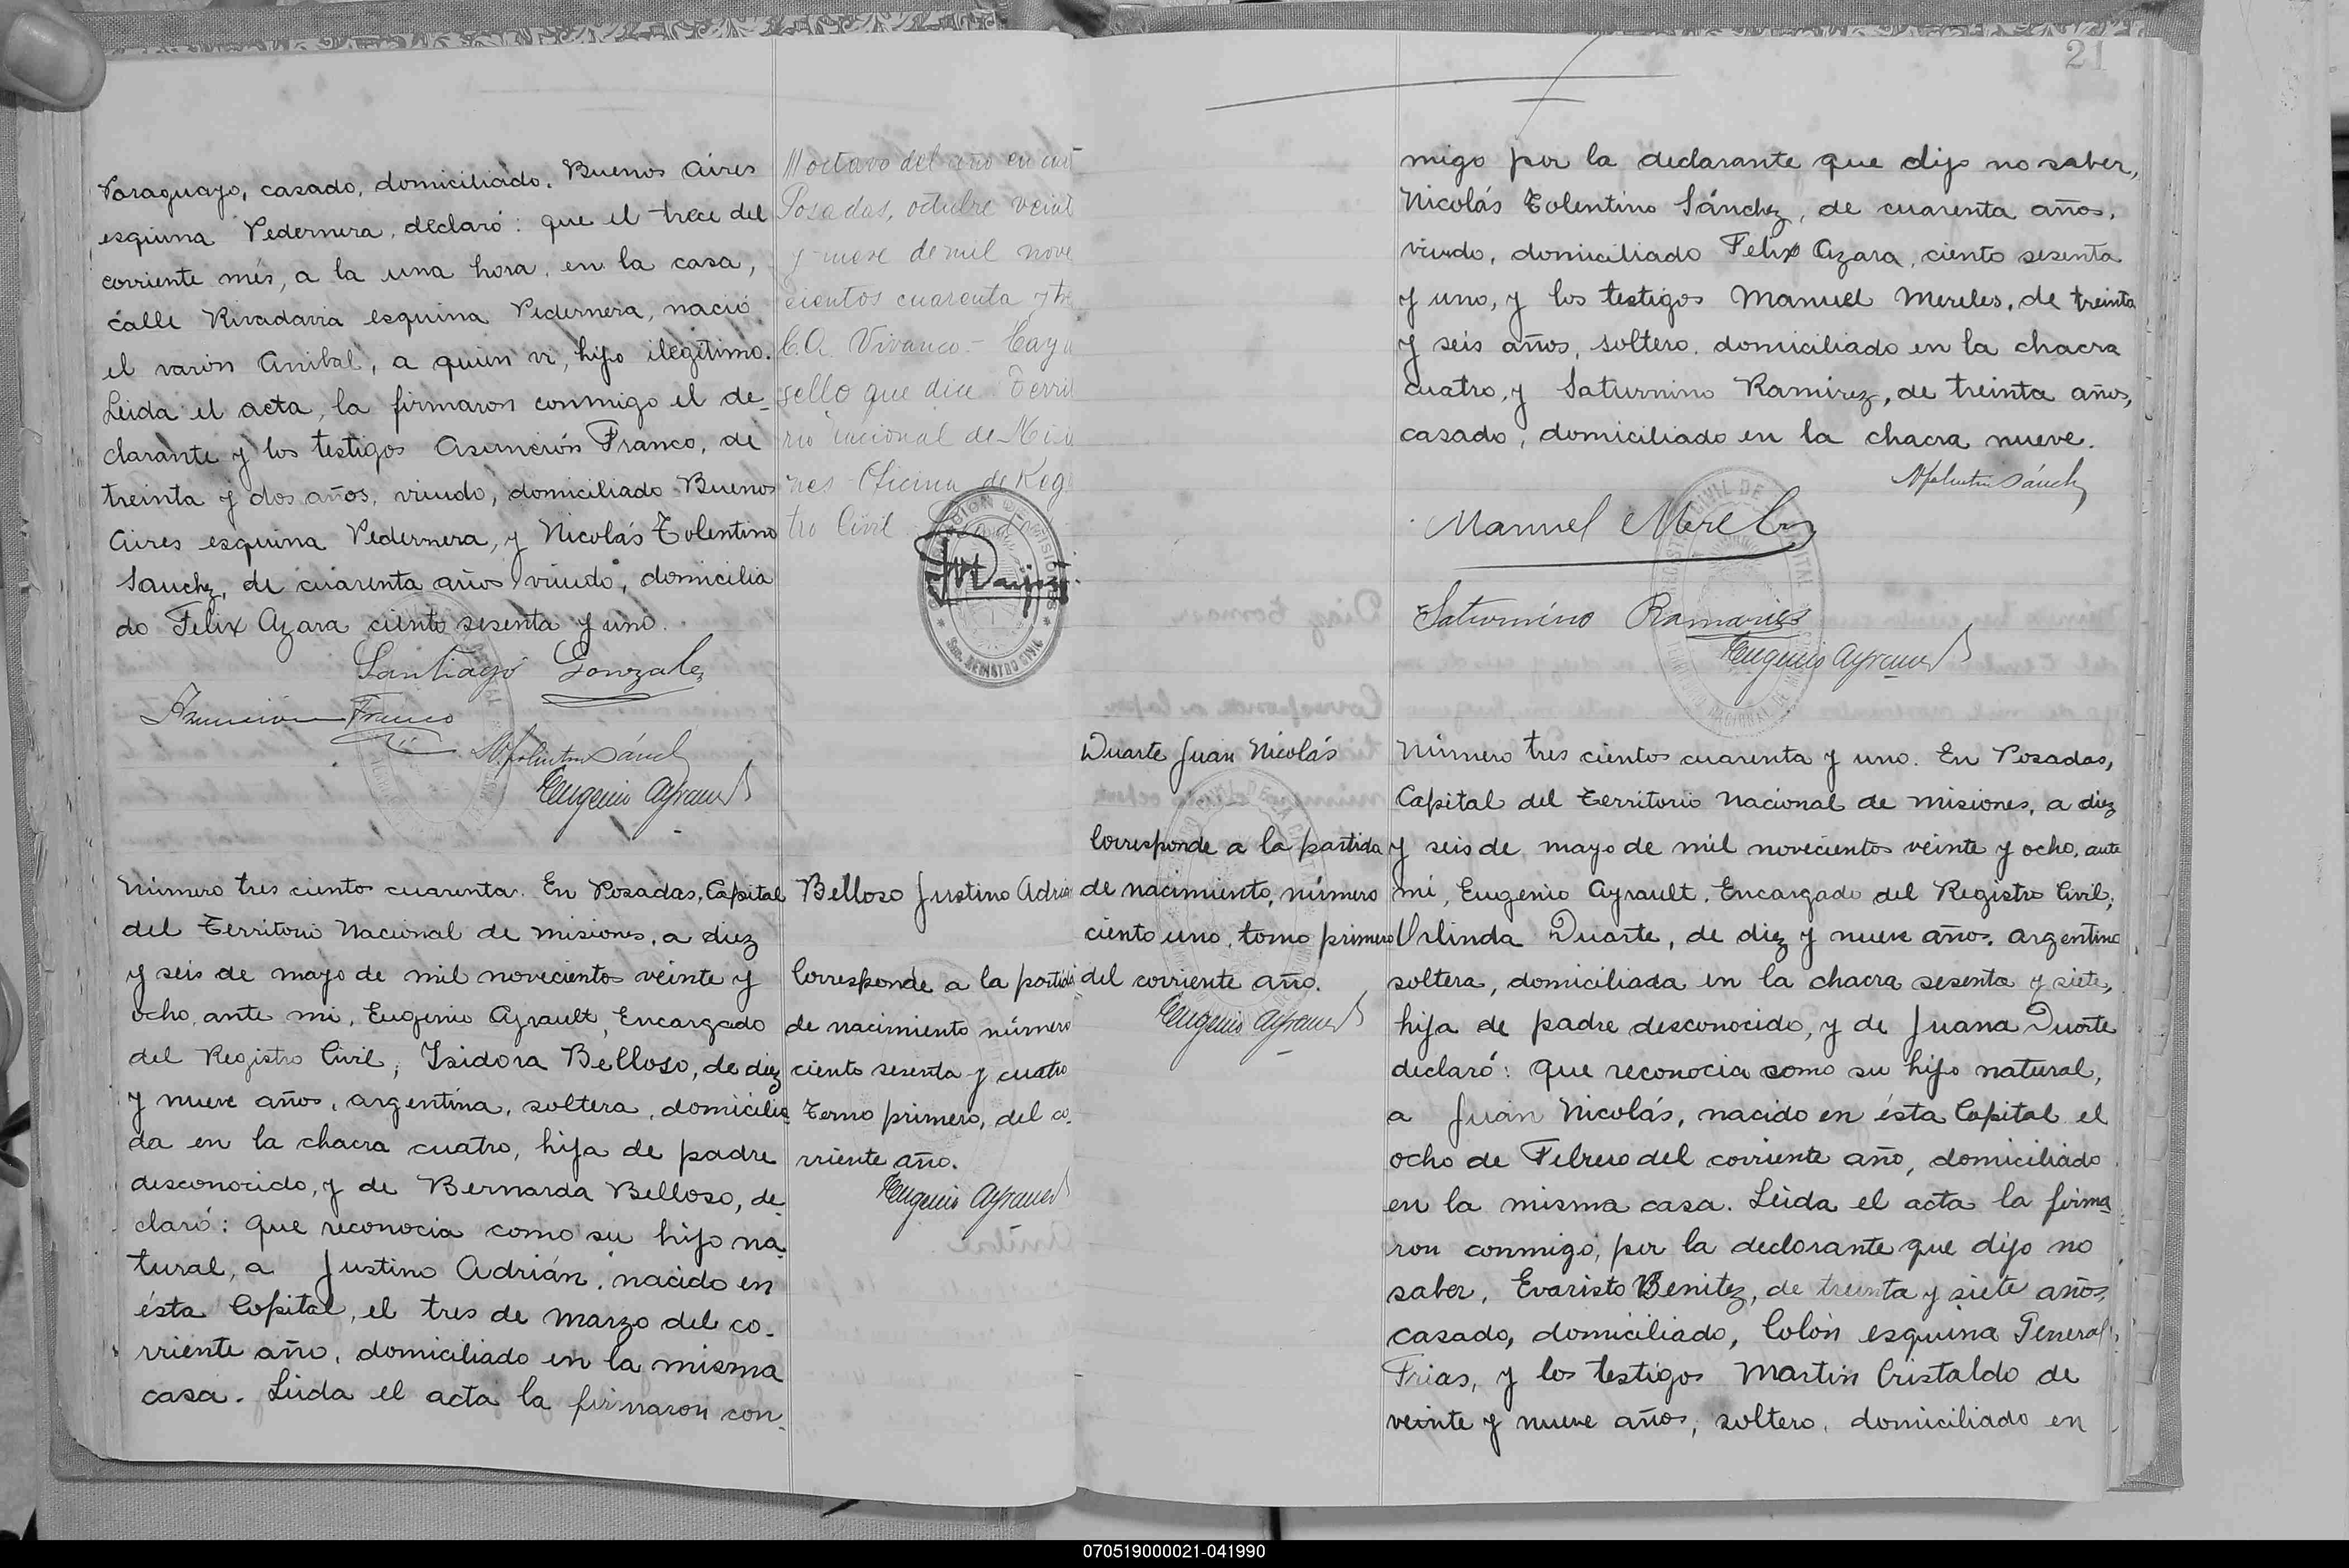 Paraguayo, casado, domiciliado, Buenos Aires
esquina Pedernera, declaró: que el trece del
corriente més, a la una hora, en la casa,
calle Rivadavia esquina Pedernera, nació
el varón Anibal, a quien vi, hijo ilegítimo.
Leida el acta, la firmaron conmigo el de-
clarante y los testigos Asunción Franco, de
treinta y dos años, viudo, domiciliado Buenos
Aires esquina Pedernera, y Nicolás Tolentino
Sanchz, de cuarenta años viudo, domicilia
do Felix Azara ciento sesenta y uno.
Santiago Gonzalez
Asuncion Franco
N. Tolentino Sánch
Eugenio Ayrault
Número tres ciento cuarenta. En Posadas, Capital
del Territorio Nacional de Misiones, a diez
y seis de mayo de mil novecientos veinte y
ocho, ante mi, Eugenio Ayrault, Encargado
del Registro Civil, Isidora Belloso, de diez
y nueve años, argentina, soltera, domicilia
da en la chacra cuatro, hija de padre
desconocido, y de Bernarda Belloso, de-
claró: que reconocia como su hijo na-
tural, a Justino Adrián, nacido en
ésta Capital, el tres de marzo del co-
rriente año, domiciliado en la misma
casa. Leida el acta la firmaron con-
// octavo del año en
Posadas, octubre veint
y nueve de mil nove
cientos cuarenta y
C.A. Vivanco -
sello que dice
nacional de
nes Oficina de Reg
tro Civil
Sec. REGISTRO CIVIL
Belloso Justino Adrian
Corresponde a la partida
de nacimiento número
ciento sesenta y cuatro
Tomo primero, del co-
rriente año.
Eugenio Ayrault
21
migo por la declarante que dijo no saber,
Nicolás Tolentino Sánchez, de cuarenta años,
viudo, domiciliado Felix Azara, ciento sesenta
y uno, y los testigos Manuel Mereles, de treinta
y seis años, soltero, domiciliado en la chacra
cuatro, y Saturnino Ramirez, de treinta años,
casado, domiciliado en la chacra nueve.
N Tolentino Sánch
Manuel Mereles
Saturnino Ramires
Eugenio Ayrault
Duarte Juan Nicolás
Corresponde a la partida
de nacimiento, número
ciento uno, tomo primero
del corriente año.
Eugenio Ayrault
Número tres cientos cuarenta y uno. En Posadas,
Capital del Territorio Nacional de Misiones, a diez
y seis de mayo de mil novecientos veinte y ocho, ante
mí, Eugenio Ayrault, Encargado del Registro Civil,
Urlinda Duarte, de diez y nueve años, argentina
soltera, domiciliada en la chacra sesenta y siete,
hija de padre desconocido, y de Juana Duarte
declaró: que reconocia como su hijo natural,
a Juan Nicolás, nacido en ésta Capital el
ocho de Febrero del corriente año, domiciliado
en la misma casa. Leida el acta la firma-
ron conmigo, por la declarante que dijo no
saber, Evaristo Benitez, de treinta y siete años,
casado, domiciliado, Colón esquina General
Frias, y los testigos Martin Cristaldo de
veinte y nueve años, soltero, domiciliado en
070519000021-041990